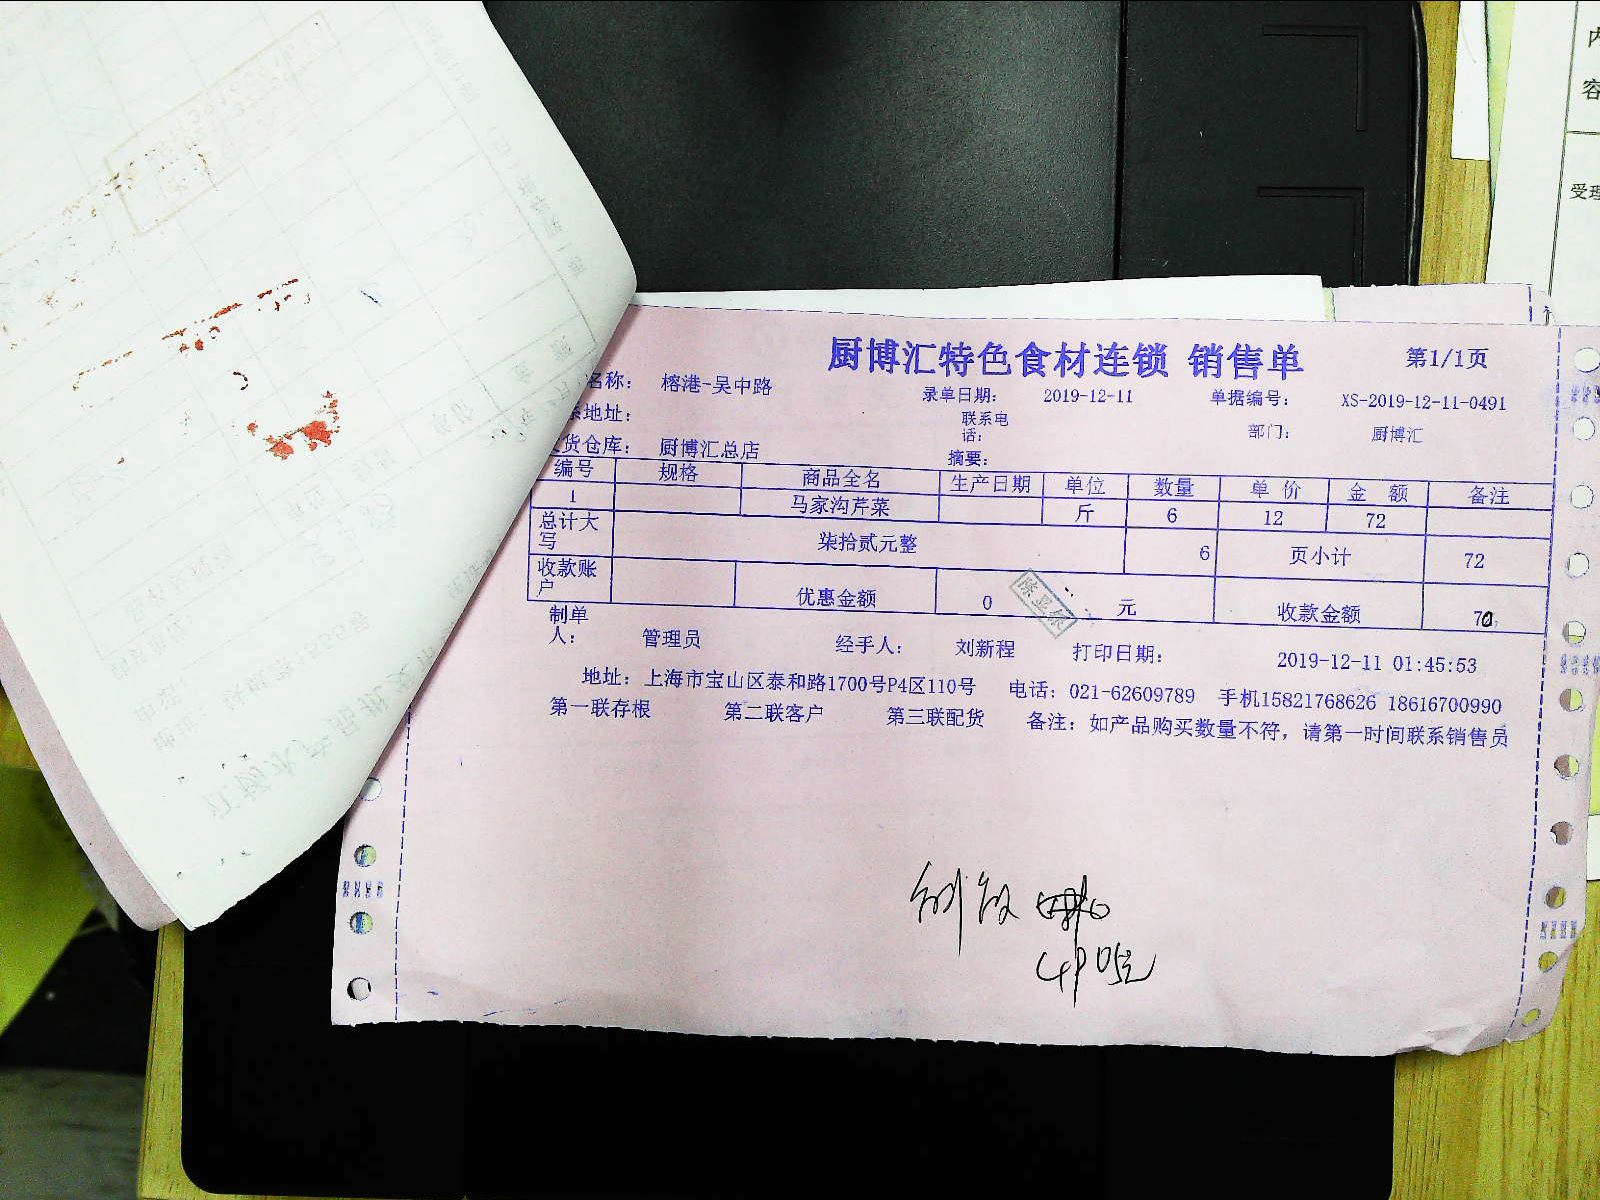 厨博汇特色食材连锁 销售单 第1/1页
名称： 榕港-吴中路 录单日期： 2019-12-11 单据编号： XS-2019-12-11-0491
地址： 联系电话： 部门： 厨博汇
货仓库： 厨博汇总店 摘要：
编号 规格 商品全名 生产日期 单位 数量 单 价 金 额 备注
1 马家沟芹菜 斤 6 12 72
总计大写 柒拾贰元整 6 页小计 72
收款账户 优惠金额 0 元 收款金额 70
制单人： 管理员 经手人： 刘新程 打印日期： 2019-12-11 01:45:53
地址：上海市宝山区泰和路1700号P4区110号 电话：021-62609789 手机15821768626 18616700990
第一联存根 第二联客户 第三联配货 备注：如产品购买数量不符，请第一时间联系销售员
内
容
受理